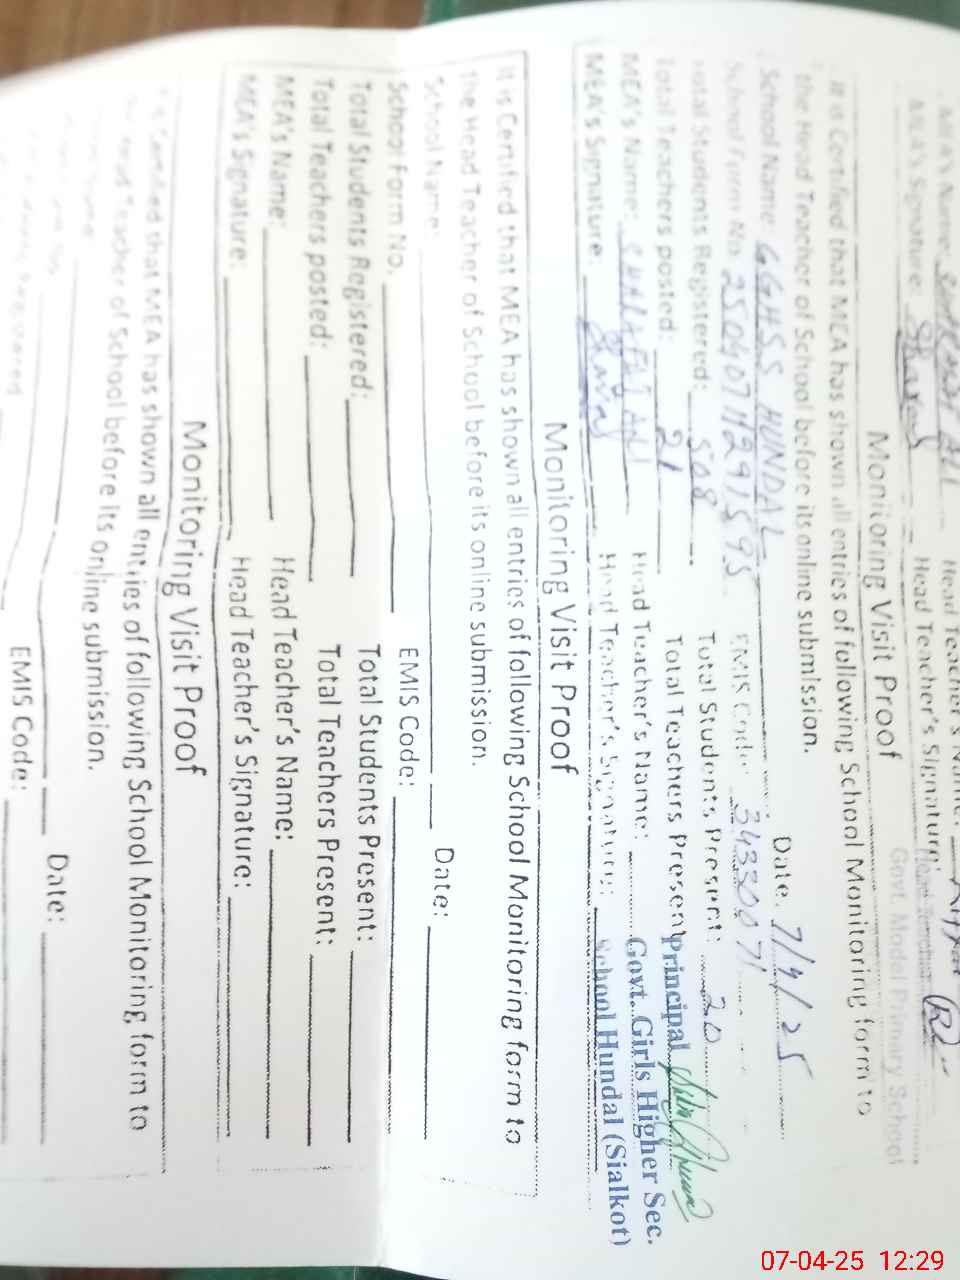 MEA's Name:
MEA's Signature: Head Teacher's Signature:
Govt. Model Primary School
Monitoring Visit Proof
It is Certified that MEA has shown all entries of following School Monitoring form to
the Head Teacher of School before its online submission.
School Name: GGHSS HUNDAL Date: 7/4/25
School Form No. EMIS Code: 34330071
Total Students Registered: 508 Total Students Present:
Total Teachers posted: 21 Total Teachers Present: 20
MEA's Name: Head Teacher's Name:
MEA's Signature: Head Teacher's Signature:
Principal
Govt. Girls Higher Sec.
School Hundal (Sialkot)
Monitoring Visit Proof
It is Certified that MEA has shown all entries of following School Monitoring form to
the Head Teacher of School before its online submission.
School Name: Date:
School Form No. EMIS Code:
Total Students Registered: Total Students Present:
Total Teachers posted: Total Teachers Present:
MEA's Name: Head Teacher's Name:
MEA's Signature: Head Teacher's Signature:
Monitoring Visit Proof
It is Certified that MEA has shown all entries of following School Monitoring form to
the Head Teacher of School before its online submission.
Date:
EMIS Code:
07-04-25 12:29